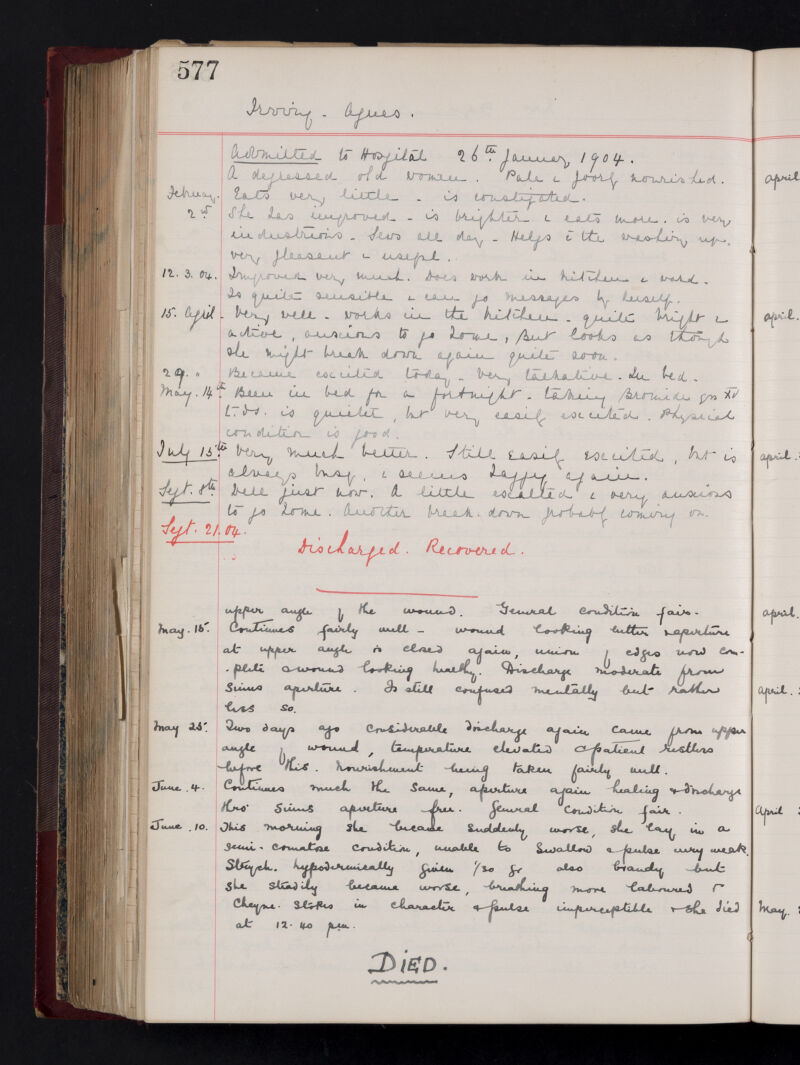 577
Irving - Agnes.
Admitted to Hospital 26th January 1904.
A depressed old woman. Pale & poorly nourished.
Eats very little - is constipated.
February.
2nd She has improved - is brighter & eats more. is very
industrious - Sews all day - Helps c the washing up.
very pleasant & useful.
12.3.04. Improved very much. Does work in kitchen & ward.
Is quite sensible & can go messages by herself.
15. April - Very well - works in the kitchen - quite bright &
active, anxious to go home, but looks as though
she might break down again quite soon.
29. " Became excited today - Very talkative. In bed.
May. 14th Been in bed for a fortnight - taking Bromide grs XV
t.ds. is quieter, but very easily excited. Physical
condition is good.
July 15th Very much better. Still easily excited, but is
always busy, & seems happy again.
Sept. 8th Well just now. A little exalted & very anxious
to go home. Another break-down probably coming on.
Sept. 21.04.
Discharged. Recovered.
upper angle of the wound. General condition fair.
May. 15. Continues fairly well - wound looking better & aperture
at upper angle is closed again, union of edges now com-
-plete & wound looking healthy. Discharge moderate from
sinus aperture. Is still confused mentally but rather
less so.
May 25. Two days ago considerable discharge again came from upper
angle of wound, temperature elevated & patient restless
before this. Nourishment being taken fairly well.
June. 4. Continues much the same, aperture again healing & discharge
thro' sinus aperture free. General condition fair.
June. 10. This morning she became suddenly worse, she lay in a
semi-comatose condition, unable to swallow & pulse very weak.
Strych. hypodermically given 1/30 gr also brandy but
she steadily became worse, breathing more laboured &
Cheyne-Stokes in character & pulse imperceptible & she died
at 12.40 p.m.
DIED.
April
April.
April.
April.
April.
April
May.